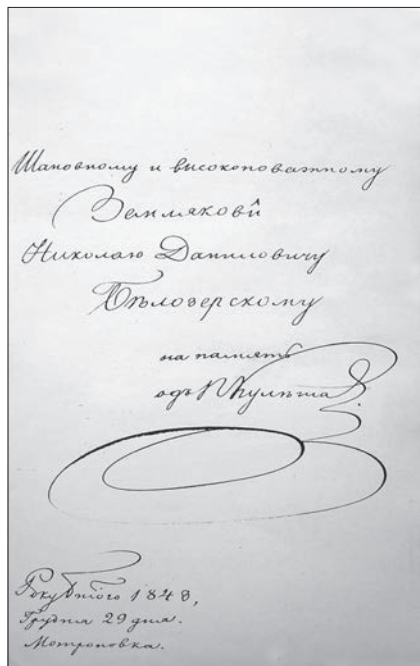 Шановному и высокоповажному
Земляковî
Николаю Даниловичу
Бѣлозерскому
на память
одъ П Кулѣша.
Року 1843,
Грудня 29 дня.
Мотроновка.